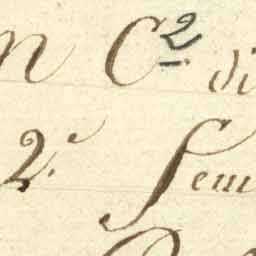 n C2 di
2.º Sem